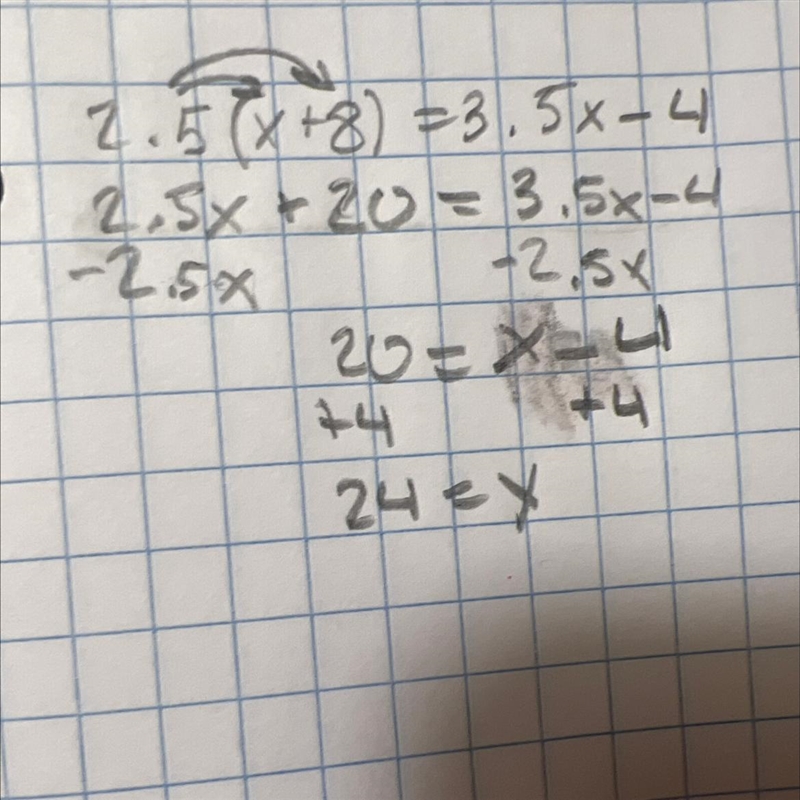 2.5(x+8)=3.5x-4
2.5x+20=3.5x-4
-2.5x -2.5x
20=x-4
+4 +4
24=x